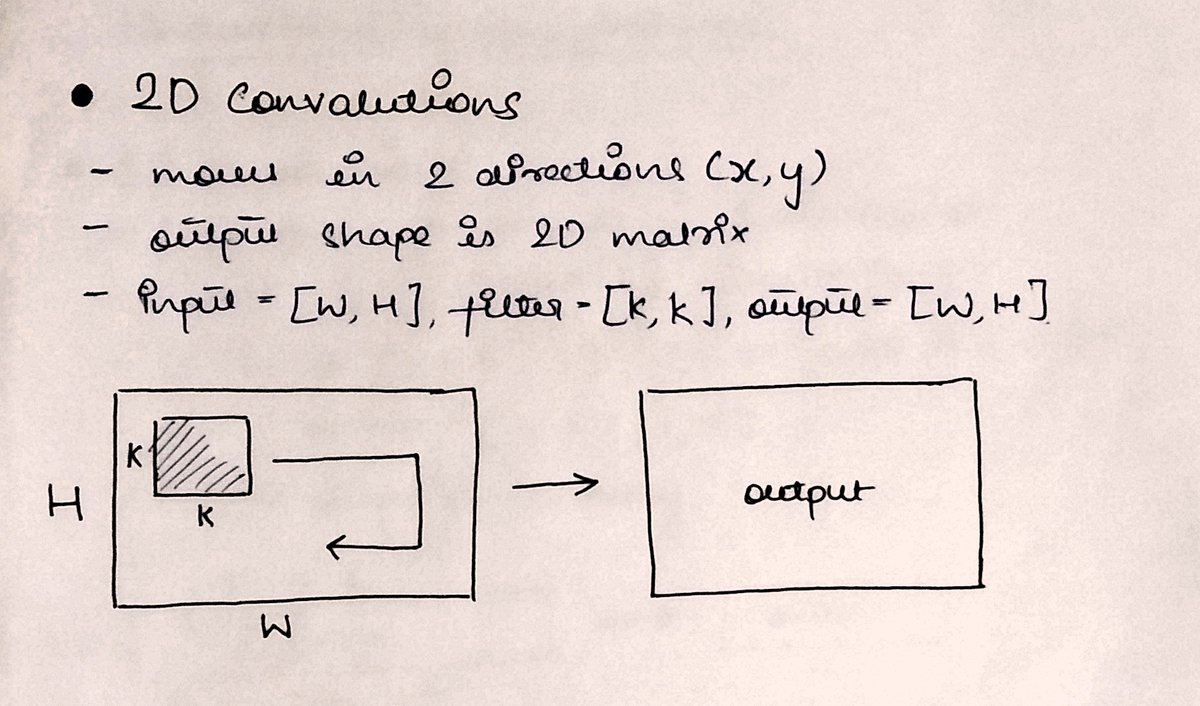 • 2D Convalutions
- moves in 2 directions (x,y)
- output shape is 2D matrix
- input = [W, H], filter = [K, K], output = [W, H]
K
K
H
W
output